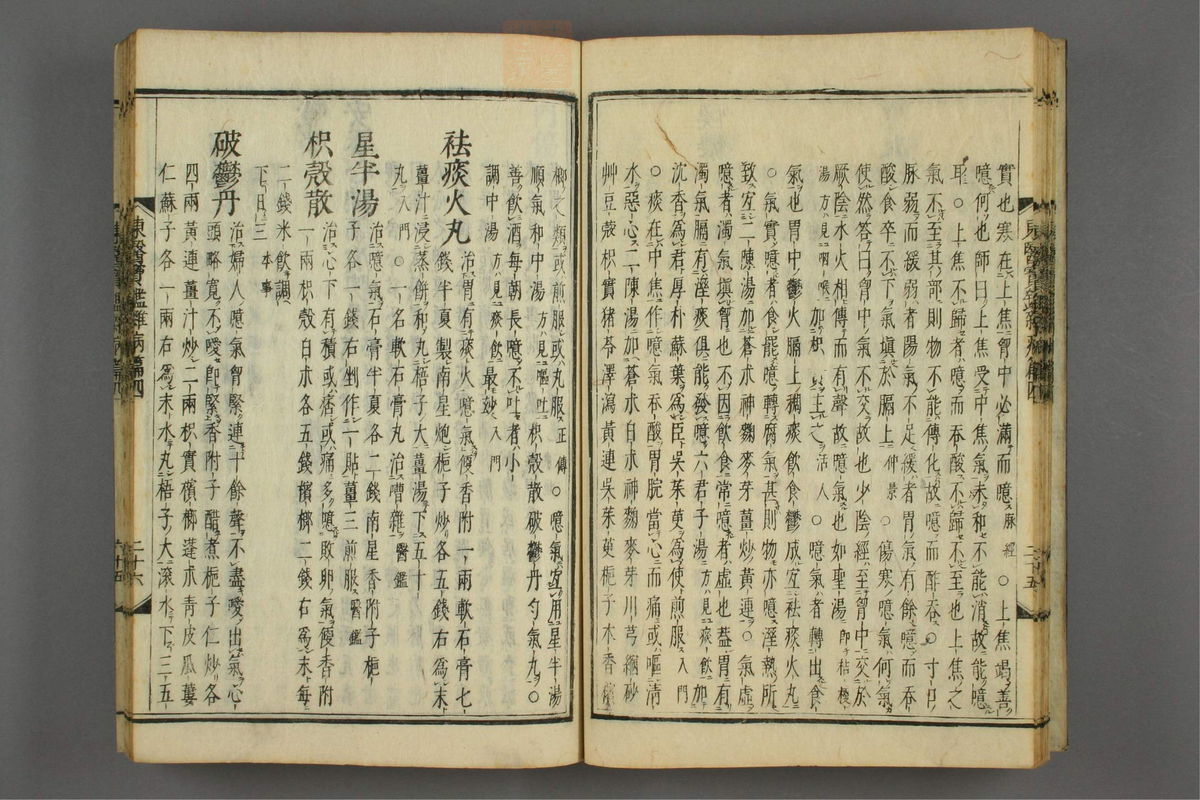 實也寒在上焦胷中必滿而噫脉經○上焦竭善
噫何也師曰上焦受中焦氣未和不能消故能噫
耳○上焦不歸者噫而吞酸不歸不至也上焦之
氣不至其部則物不能傳化故噫而酢吞○寸口
脉弱而緩弱者陽氣不足緩者胃氣有餘噫而吞
酸食卒不下氣塡於膈上仲景○傷寒噫氣何氣
使然答曰胷中氣不交故也少陰經至胷中交於
厥陰水火相傳而有聲故噫氣也如聖湯即桔梗
湯方見咽喉加枳 主之活人○噫氣者轉出食
氣也胃中鬱火膈上稠痰飮食鬱成宜祛痰火丸
○氣實噫者食罷噫轉腐氣甚則物亦噫溼熱所
致宜二陳湯加蒼朮神麴麥芽薑炒黃連○氣虛
噫者濁氣塡胷也不因飮食常噫者虛也盖胃有
濁氣膈有溼痰俱能發噫六君子湯方見痰飮加
沈香爲君厚朴蘇葉爲臣吳茱萸爲使煎服入門
○痰在中焦作噫氣吞酸胃脘當心而痛或嘔清
水惡心二陳湯加蒼朮白朮神麴麥芽川芎縮砂
艸豆蔲枳實猪苓澤瀉黃連吳茱萸梔子木香檳
榔之類或煎服或丸服正傳○噫氣宜用星半湯
順氣和中湯方見嘔吐枳殼散破鬱丹勻氣丸○
善飮酒每朝長噫不吐者小
調中湯方見痰飮最玅入門
祛痰火丸治胃有痰火噫氣便香附一兩軟石膏七
錢半夏製南星炮梔子炒各五錢右爲末
薑汁浸蒸餠和丸梧子大薑湯下五十
丸入門○一名軟石膏丸治嘈雜醫鑑
星半湯治噫氣石膏半夏各二錢南星香附子梔
子各一錢右剉作一貼薑三煎服醫鑑
枳殼散治心下有積或痞或痛多噫敗卵氣便香附
一兩枳殼白朮各五錢檳榔二錢右爲末每
二錢米飮調
下日三本事
破鬱丹治婦人噫氣胷緊連十餘聲不盡噯出氣心
頭略寬不噯即緊香附子醋煮梔子仁炒各
四兩黃連薑汁炒二兩枳實檳榔蓬朮靑皮瓜蔞
仁蘇子各一兩右爲末水丸梧子大滾水下三五